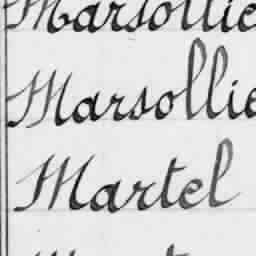 Marsollie
Marsollie
Martel